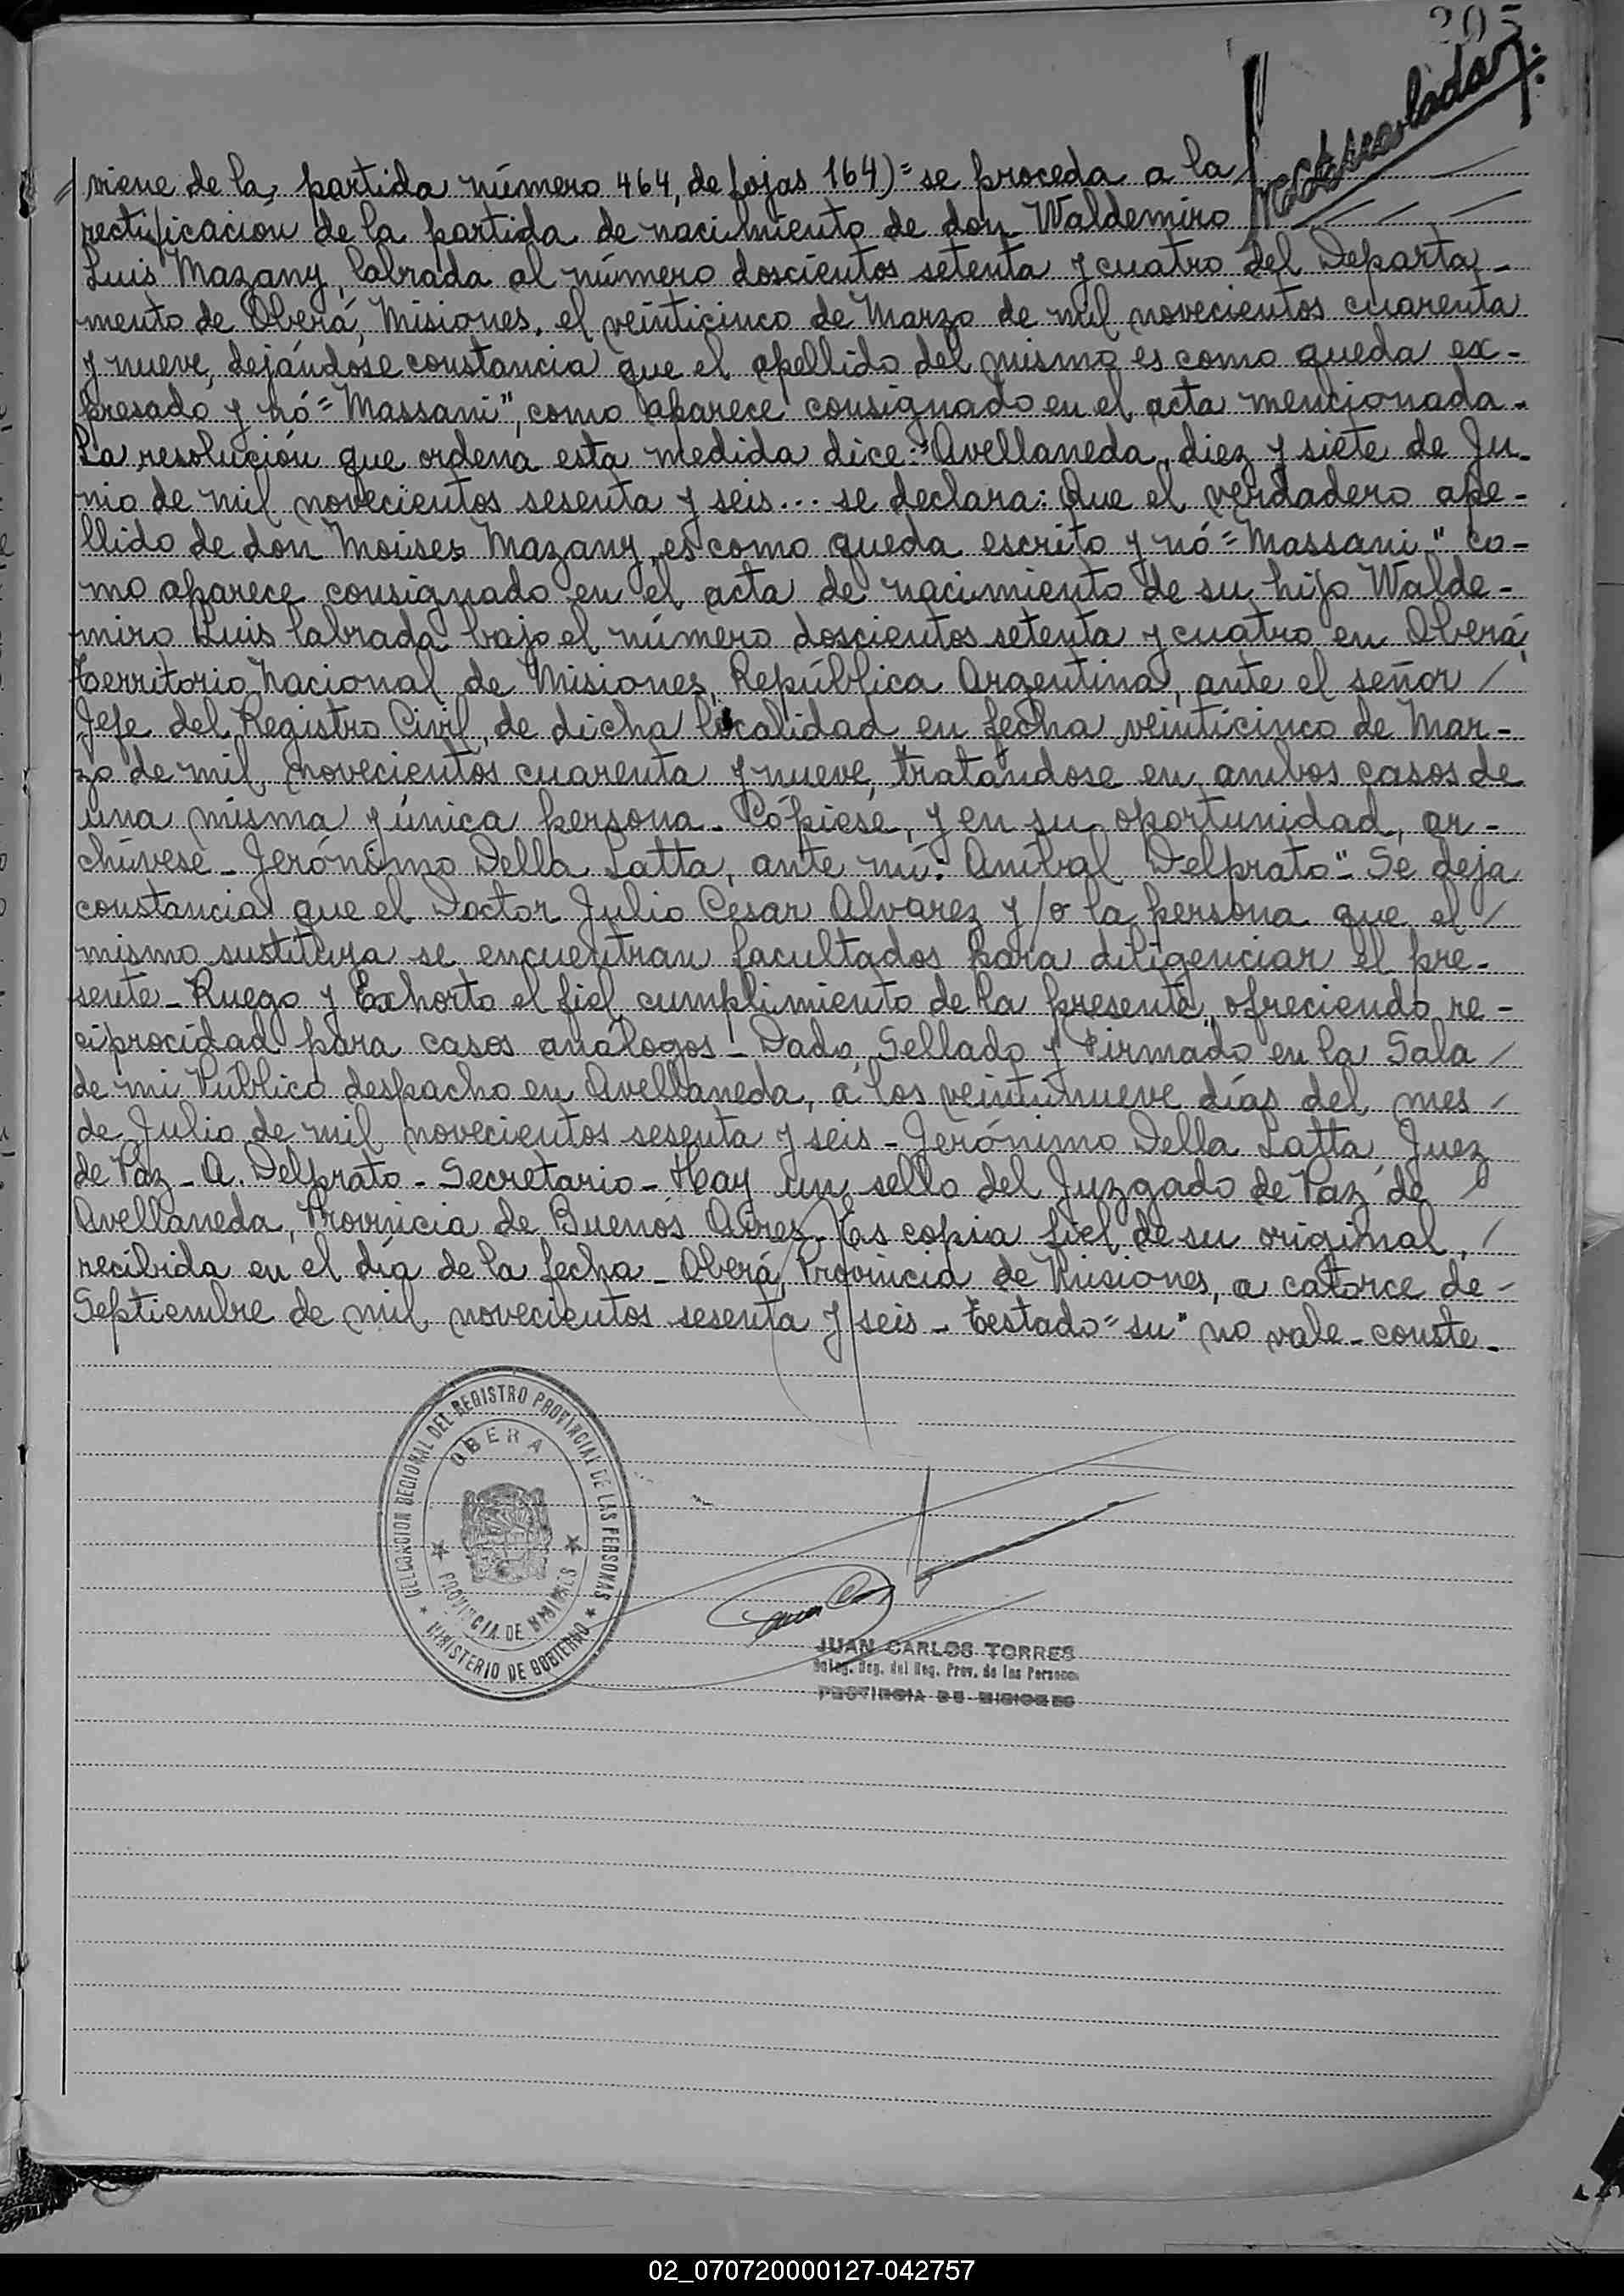 205
viene de la partida número 464, de fojas 164)= se proceda a la
rectificación de la partida de nacimiento de don Waldemiro
Luis Mazany, labrada al número doscientos setenta y cuatro del Departa-
mento de Oberá, Misiones, el veinticinco de Marzo de mil novecientos cuarenta
y nueve, dejándose constancia que el apellido del mismo es como queda ex-
presado y nó = Massani", como aparece consignado en el acta mencionada.
La resolución que ordena esta medida dice: "Avellaneda, diez y siete de Ju-
nio de mil novecientos sesenta y seis... se declara: Que el verdadero ape-
llido de don Moises Mazany, es como queda escrito y nó = Massani" co-
mo aparece consignado en el acta de nacimiento de su hijo Walde-
miro Luis labrada bajo el número doscientos setenta y cuatro en Oberá,
Territorio Nacional de Misiones, República Argentina, ante el señor /
Jefe del Registro Civil, de dicha localidad en fecha veinticinco de Mar-
zo de mil novecientos cuarenta y nueve, tratándose en ambos casos de
una misma y única persona. Cópiese, y en su oportunidad, ar-
chívese - Jerónimo Della Latta, ante mí: Aníbal Delprato" - Se deja
constancia que el Doctor Julio Cesar Alvarez y/o la persona que el /
mismo sustituya se encuentran facultados para diligenciar el pre-
sente - Ruego y Exhorto el fiel cumplimiento de la presente, ofreciendo re-
ciprocidad para casos análogos - Dado, Sellado y Firmado en la Sala /
de mi Público despacho en Avellaneda, a los veintinueve días del mes /
de Julio de mil novecientos sesenta y seis - Jerónimo Della Latta, Juez
de Paz - A. Delprato - Secretario - Hay un sello del Juzgado de Paz de /
Avellaneda, Provincia de Buenos Aires. Es copia fiel de su original, /
recibida en el día de la fecha - Oberá, Provincia de Misiones, a catorce de -
Septiembre de mil novecientos sesenta y seis - Testado = su" no vale - conste -
DELEGACION REGIONAL DEL REGISTRO PROVINCIAL DE LAS PERSONAS
OBERA
PROVINCIA DE MISIONES
MINISTERIO DE GOBIERNO
JUAN CARLOS TORRES
Deleg. Reg. del Reg. Prov. de las Personas
PROVINCIA DE MISIONES
02_070720000127-042757